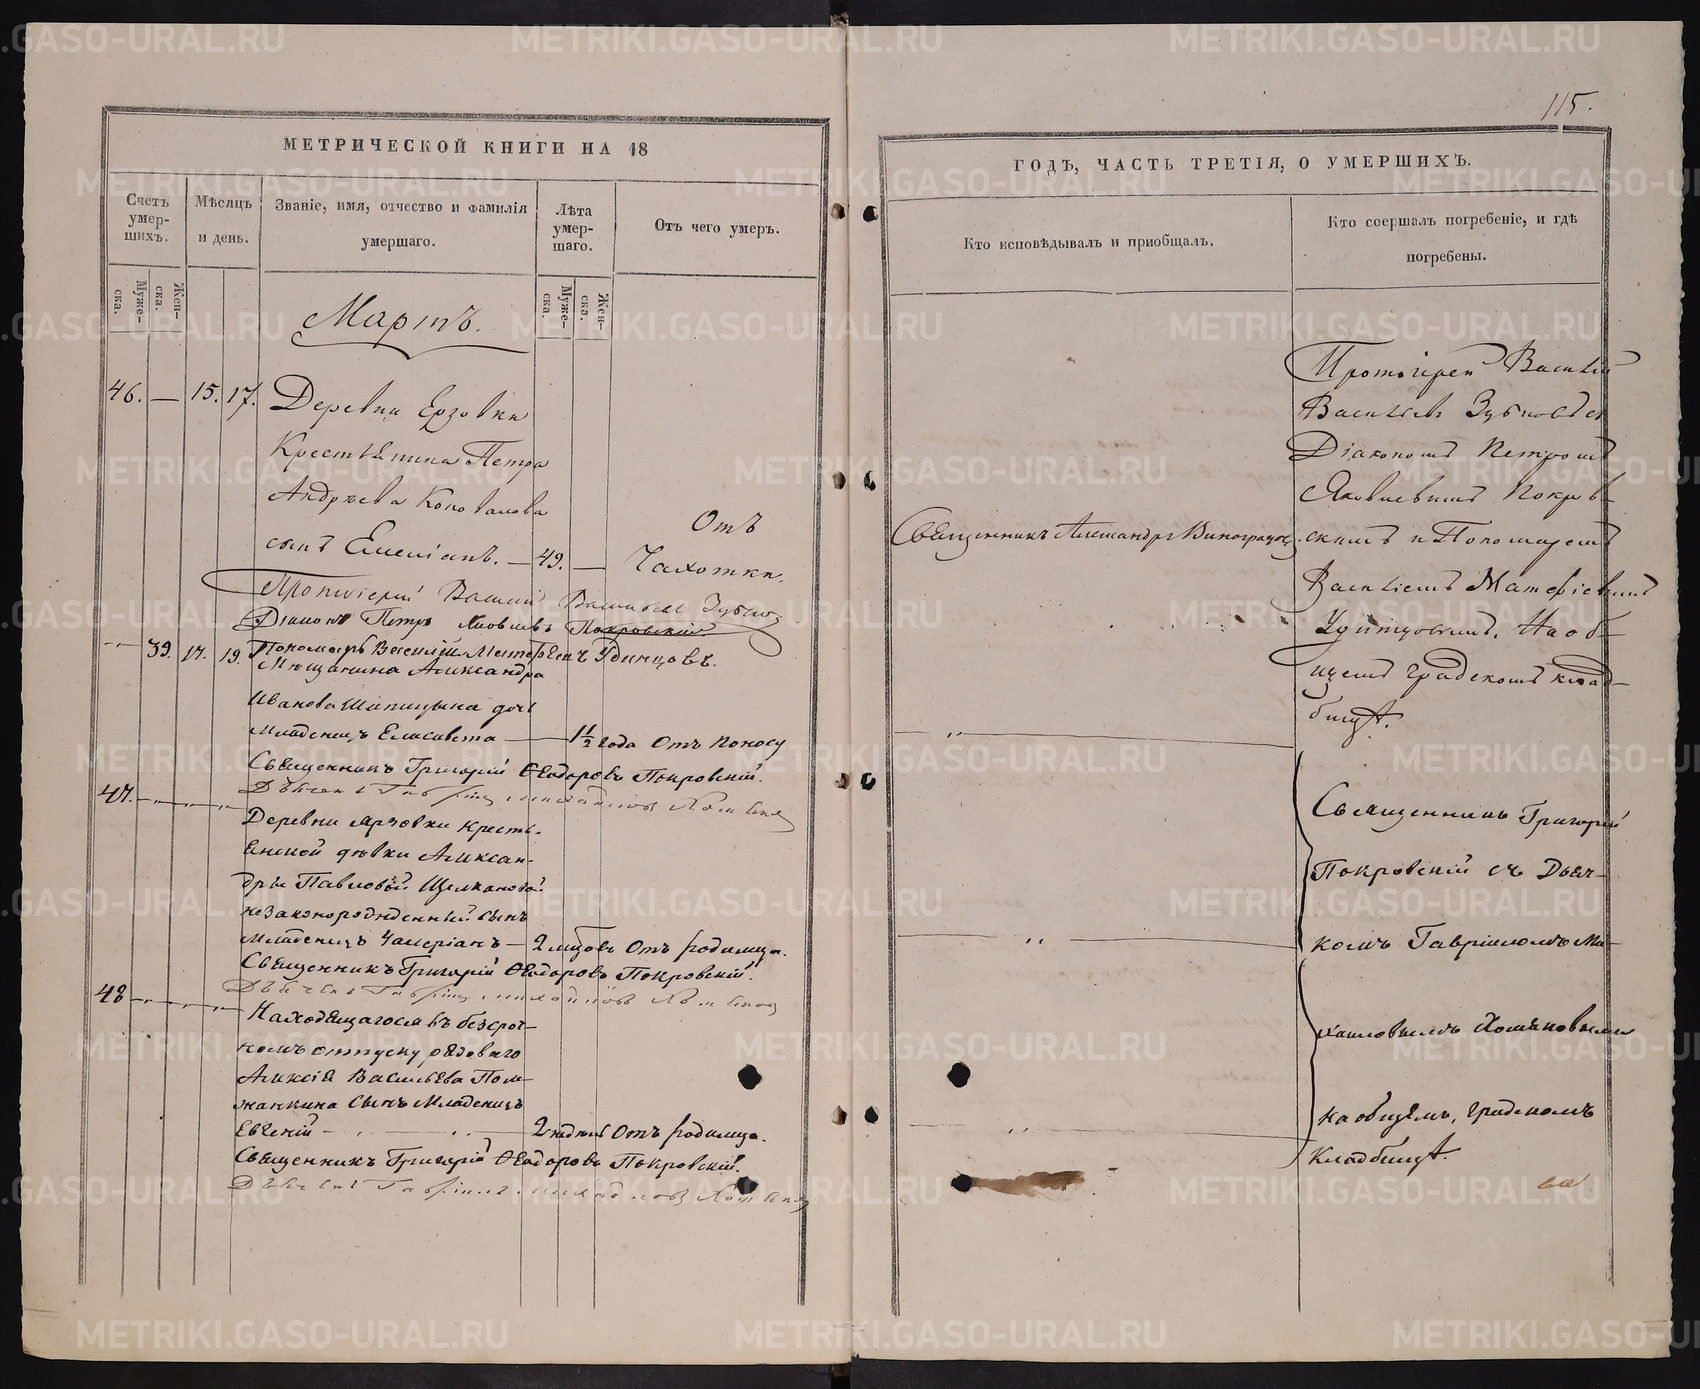 115.
МЕТРИЧЕСКОЙ КНИГИ НА 18
ГОДЪ, ЧАСТЬ ТРЕТІЯ, О УМЕРШИХЪ.
Счетъ умер-шихъ.
Мѣсяцъ и день.
Званіе, имя, отчество и фамилія умершаго.
Лѣта умер-шаго.
Отъ чего умеръ.
Кто исповѣдывалъ и приобщалъ.
Кто соершалъ погребеніе, и гдѣ погребены.
Муже-ска.
Жен-ска.
Муже-ска.
Жен-ска.
Мартъ.
46. — 15. 17. Деревни Ерзовки
Крестьянина Петра
Андреева Коновалова
сынъ Емеліанъ. — 49. — Отъ Чахотки.
Протоіерей Василій Васильевъ
Діаконъ Петръ Яковлевъ Покровскій
Пономарь Василій Матфеевъ Удинцовъ.
39. 17. 19. Мещанина Александра
Иванова Шипицына дочь
Младенецъ Елисавета — 1 1/2 года Отъ поносу
Священникъ Григорій Ѳеодоровъ Покровскій.
47. Деревни Ярзовки кресть-
янской дѣвки Алексан-
дры Павловой Щелкановой
незаконорожденный сынъ
Младенецъ Валеріанъ — 2 мцовъ Отъ родимца.
Священникъ Григорій Ѳеодоровъ Покровскій.
48 Находящагося въ безсроч-
номъ отпуску рядоваго
Алексія Васильева
сынъ Младенецъ
Евгеній — 2 недѣль Отъ родимца.
Священникъ Григорій Ѳеодоровъ Покровскій.
Священникъ Александръ Виноградовъ.
Протоіерей Василій
Васильевъ съ
Діакономъ Петромъ
Яковлевымъ Покров-
скимъ и Пономаремъ
Василіемъ Матфіевымъ
Удинцовымъ. На об-
щемъ градскомъ клад-
бищѣ.
Священникъ Григорій
Покровскій съ Дьяч-
комъ Гавріиломъ Ми-
хаиловымъ Хомяковымъ
на общемъ, градскомъ
Кладбищѣ.
METRIKI.GASO-URAL.RU